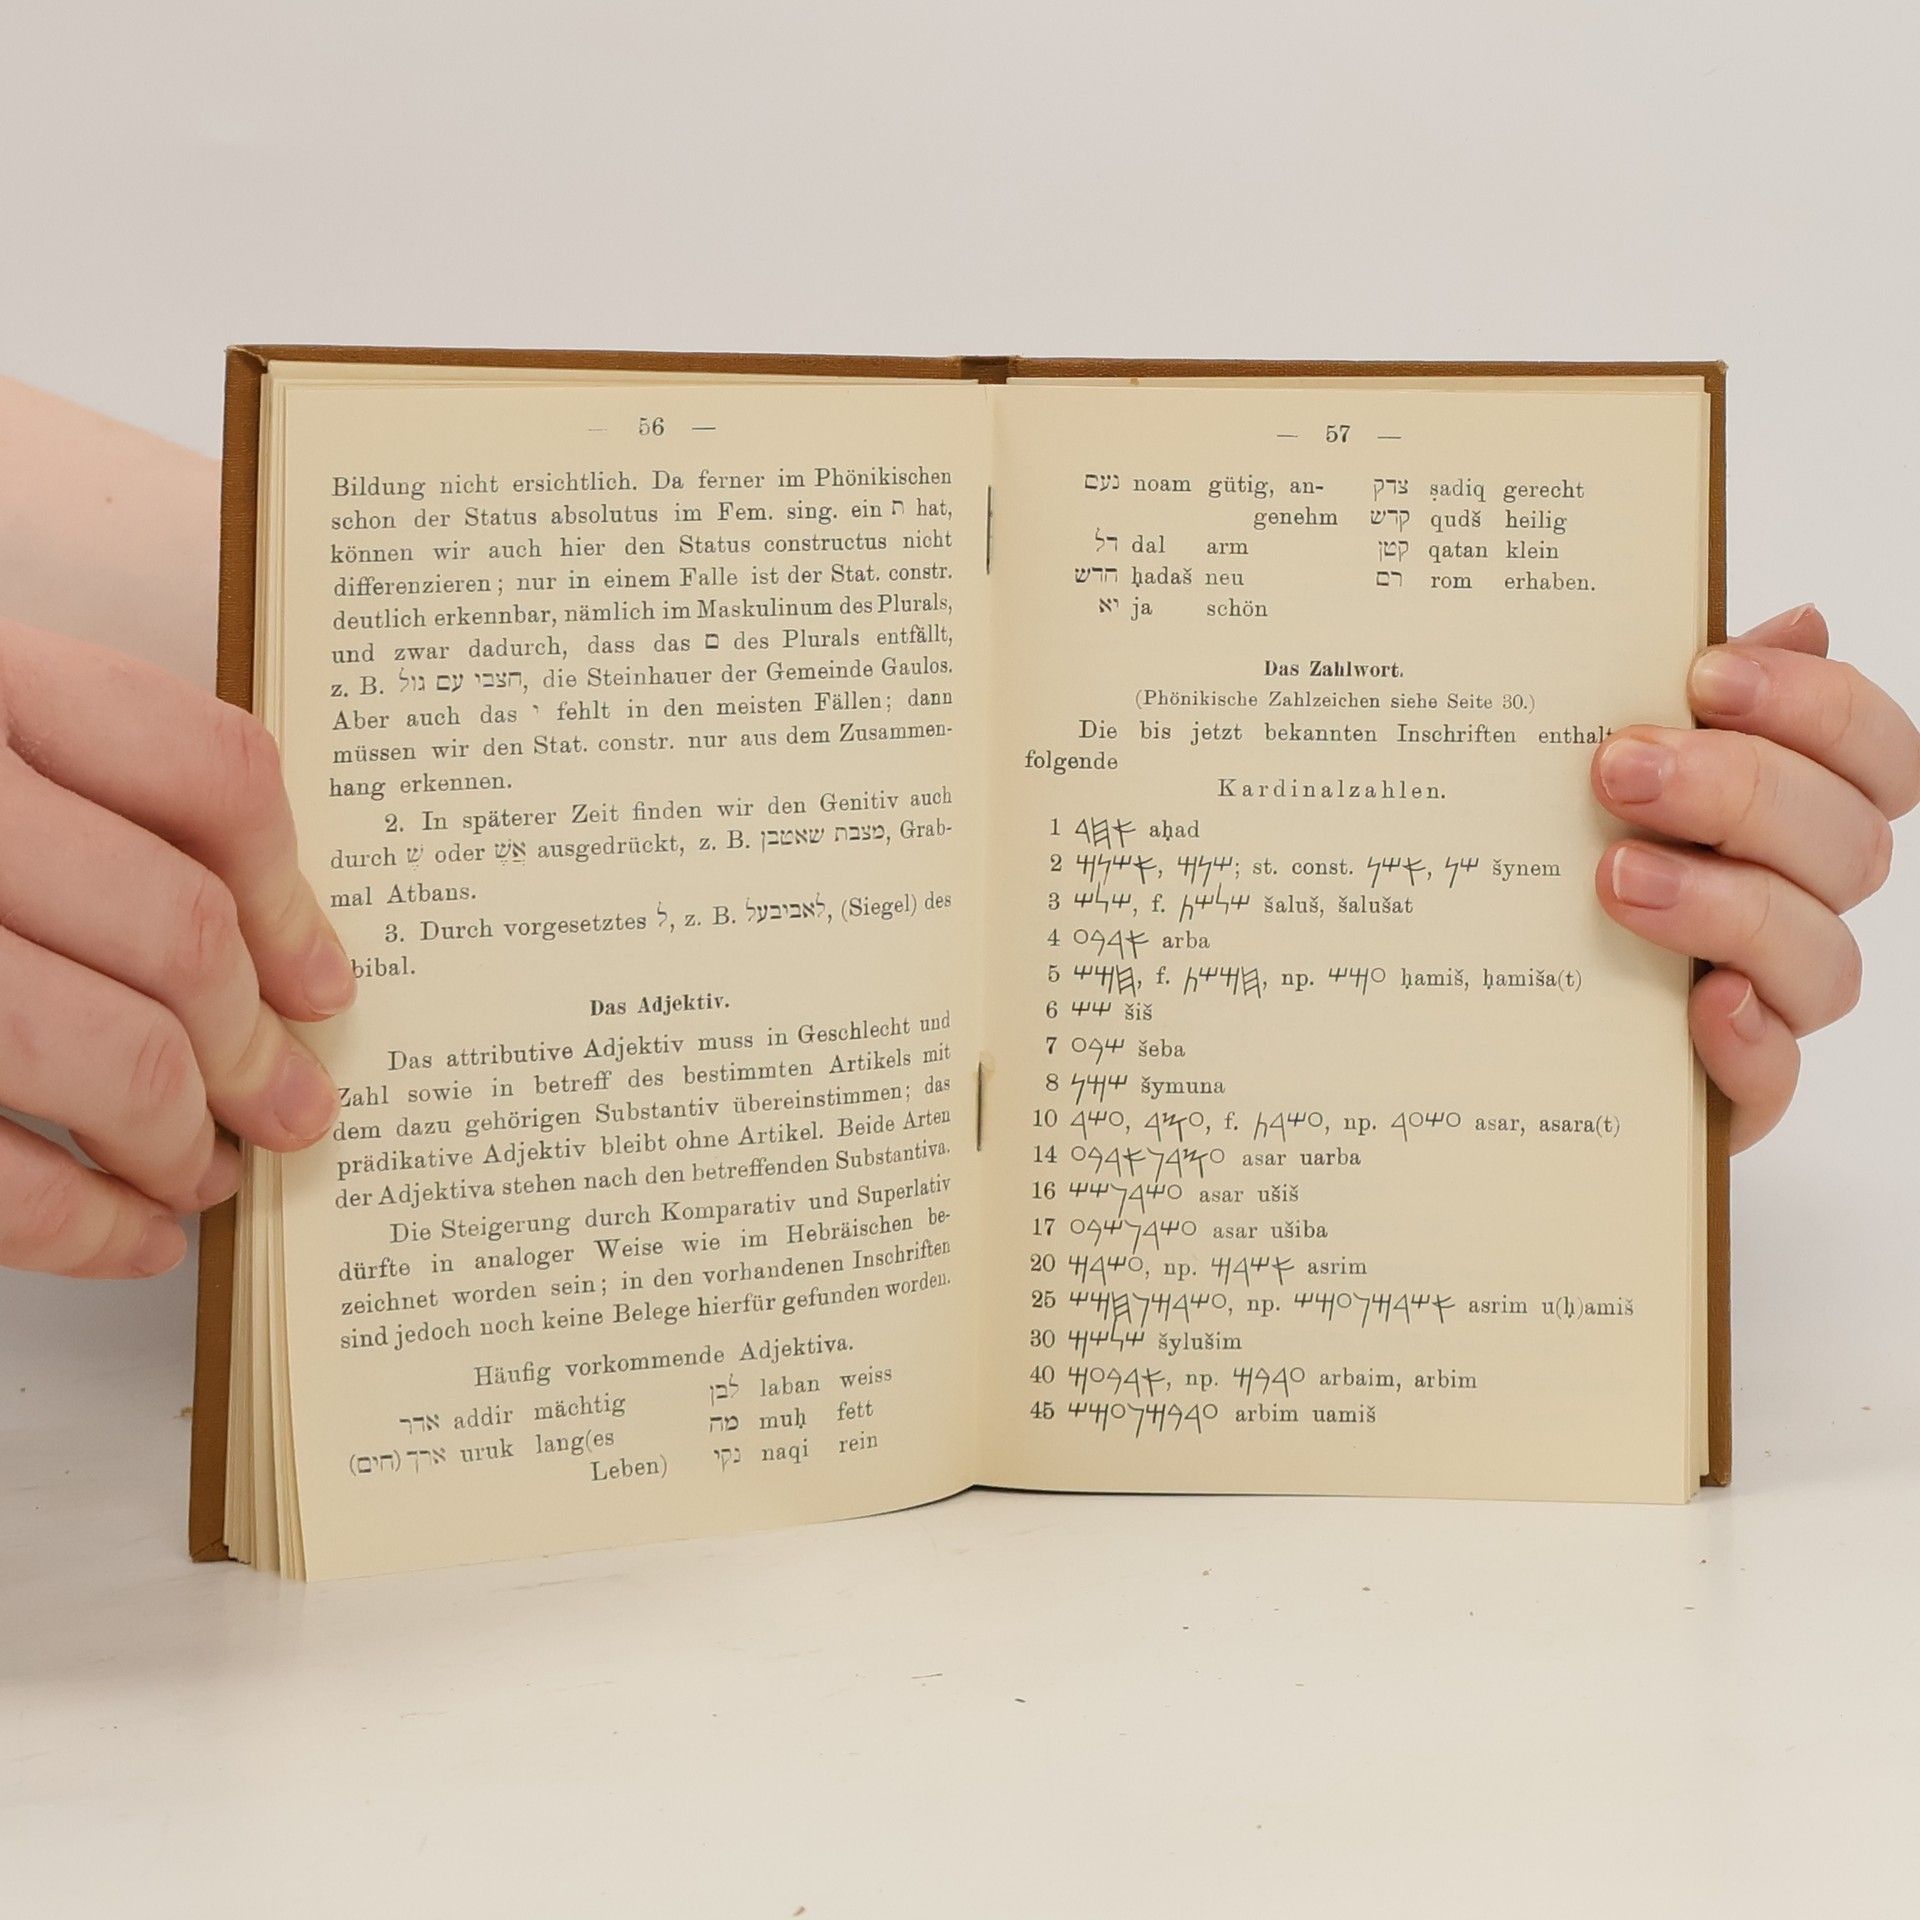 — 56 —
Bildung nicht ersichtlich. Da ferner im Phönikischen
schon der Status absolutus im Fem. sing. ein ת hat,
können wir auch hier den Status constructus nicht
differenzieren; nur in einem Falle ist der Stat. constr.
deutlich erkennbar, nämlich im Maskulinum des Plurals,
und zwar dadurch, dass das ם des Plurals entfällt,
z. B. חצבי עם גול, die Steinhauer der Gemeinde Gaulos.
Aber auch das י fehlt in den meisten Fällen; dann
müssen wir den Stat. constr. nur aus dem Zusammen-
hang erkennen.
2. In späterer Zeit finden wir den Genitiv auch
durch שֶׁ oder אֲשֶׁ ausgedrückt, z. B. מצבת שאטבן, Grab-
mal Atbans.
3. Durch vorgesetztes ל, z. B. לאביבעל, (Siegel) des
bibal.
Das Adjektiv.
Das attributive Adjektiv muss in Geschlecht und
Zahl sowie in betreff des bestimmten Artikels mit
dem dazu gehörigen Substantiv übereinstimmen; das
prädikative Adjektiv bleibt ohne Artikel. Beide Arten
der Adjektiva stehen nach den betreffenden Substantiva.
Die Steigerung durch Komparativ und Superlativ
dürfte in analoger Weise wie im Hebräischen be-
zeichnet worden sein; in den vorhandenen Inschriften
sind jedoch noch keine Belege hierfür gefunden worden.
Häufig vorkommende Adjektiva.
אדר addir mächtig
ארך (חים) uruk lang(es
Leben)
לבן laban weiss
מח muḥ fett
נקי naqi rein
— 57 —
נעם noam gütig, an-
genehm
דל dal arm
חדש ḥadaš neu
יא ja schön
צדק ṣadiq gerecht
קדש qudš heilig
קטן qatan klein
רם rom erhaben.
Das Zahlwort.
(Phönikische Zahlzeichen siehe Seite 30.)
Die bis jetzt bekannten Inschriften
folgende
Kardinalzahlen.
1 𐤀𐤇𐤃 aḥad
2 𐤀𐤔𐤍𐤌, 𐤔𐤍𐤌; st. const. 𐤀𐤔𐤍, 𐤔𐤍 šynem
3 𐤔𐤋𐤔, f. 𐤔𐤋𐤔𐤕 šaluš, šalušat
4 𐤀𐤓𐤁𐤏 arba
5 𐤇𐤌𐤔, f. 𐤇𐤌𐤔𐤕, np. 𐤏𐤌𐤔 ḥamiš, ḥamiša(t)
6 𐤔𐤔 šiš
7 𐤔𐤁𐤏 šeba
8 𐤔𐤌𐤍 šymuna
10 𐤏𐤔𐤓, 𐤏𐤎𐤓, f. 𐤏𐤔𐤓𐤕, np. 𐤏𐤔𐤏𐤓 asar, asara(t)
14 𐤏𐤎𐤓𐤅𐤀𐤓𐤁𐤏 asar uarba
16 𐤏𐤔𐤓𐤅𐤔𐤔 asar ušiš
17 𐤏𐤔𐤓𐤅𐤔𐤁𐤏 asar ušiba
20 𐤏𐤔𐤓𐤌, np. 𐤀𐤔𐤓𐤌 asrim
25 𐤏𐤔𐤓𐤌𐤅𐤇𐤌𐤔, np. 𐤀𐤔𐤓𐤌𐤅𐤏𐤌𐤔 asrim u(ḥ)amiš
30 𐤔𐤋𐤔𐤌 šylušim
40 𐤀𐤓𐤁𐤏𐤌, np. 𐤏𐤓𐤁𐤌 arbaim, arbim
45 𐤏𐤓𐤁𐤌𐤅𐤏𐤌𐤔 arbim uamiš